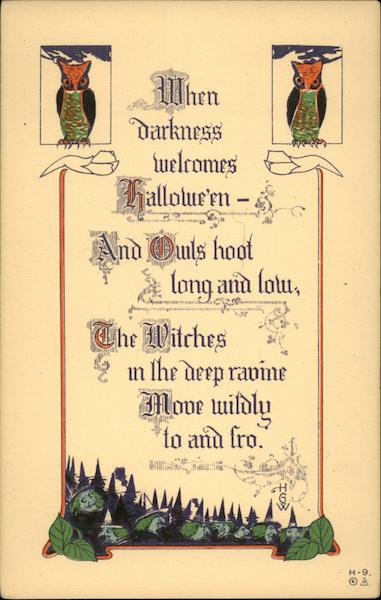 When
darkness
welcomes
Hallowe'en –
And Owls hoot
long and low,
The Witches
in the deep ravine
Move wildly
to and fro.
HGW
H-9.